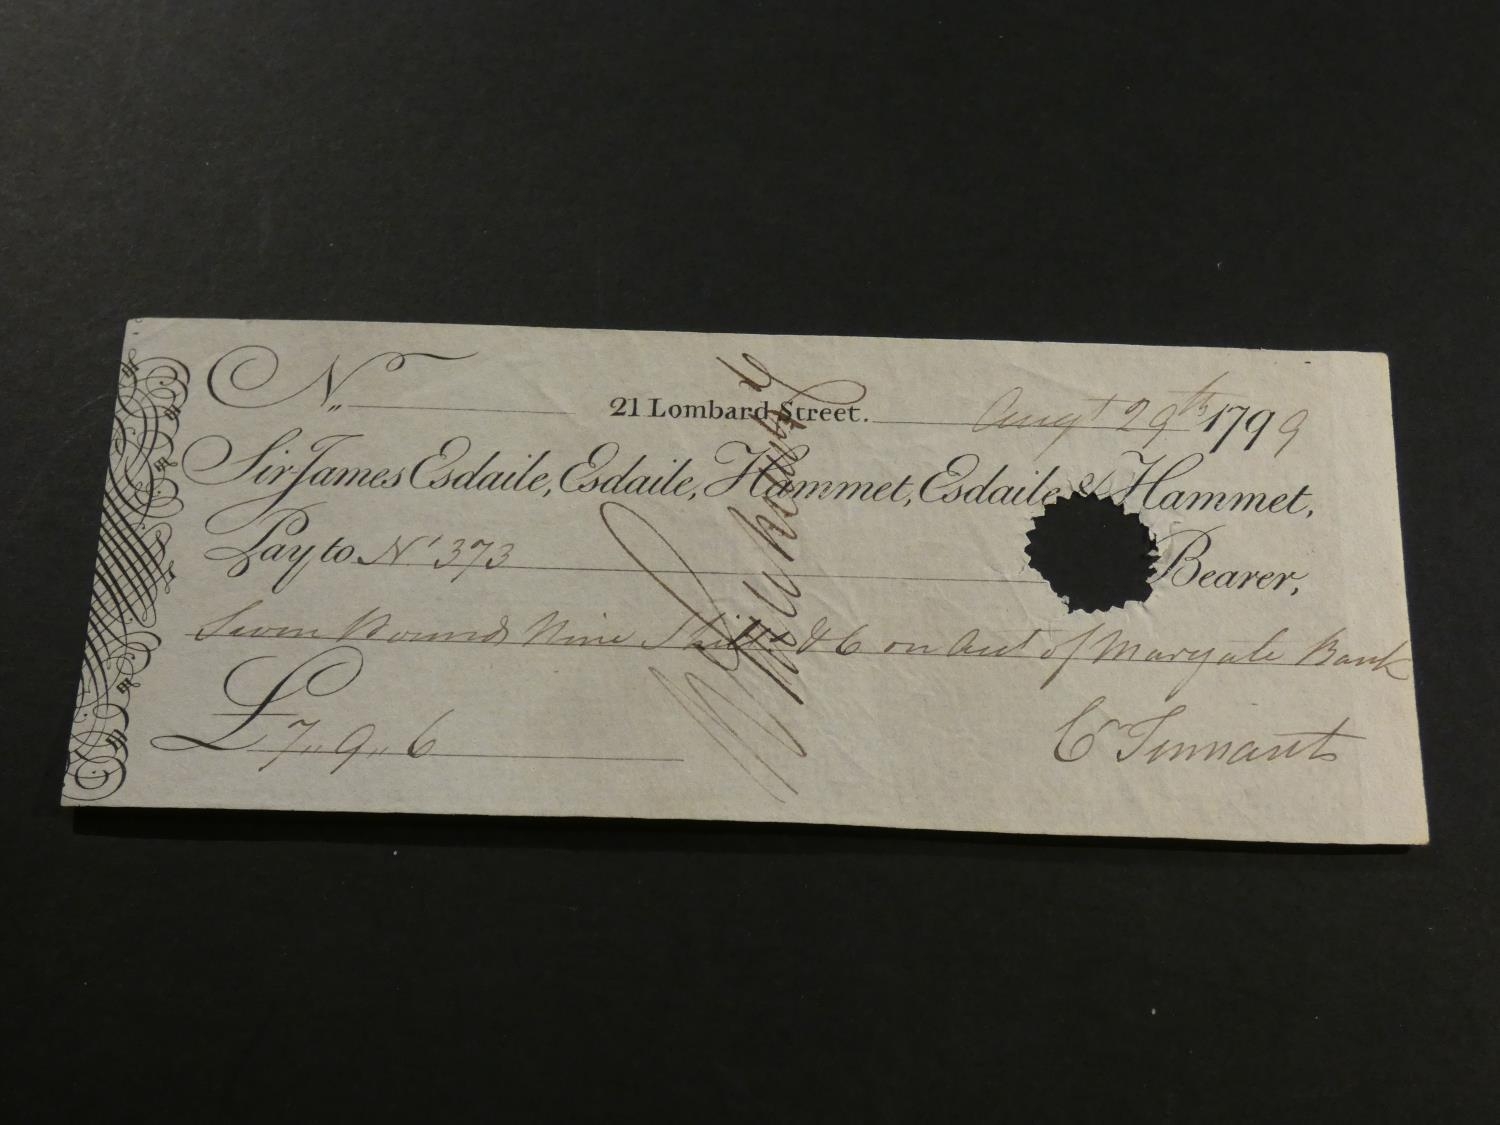 No. 21 Lombard Street. Augt 29th 1799
Sir James Esdaile, Esdaile, Hammet, Esdaile & Hammet,
Pay to No 373 Bearer,
Seven Pounds Nine Shills & 6 on Acct of Bank
£ 7,, 9,, 6 C Tennant